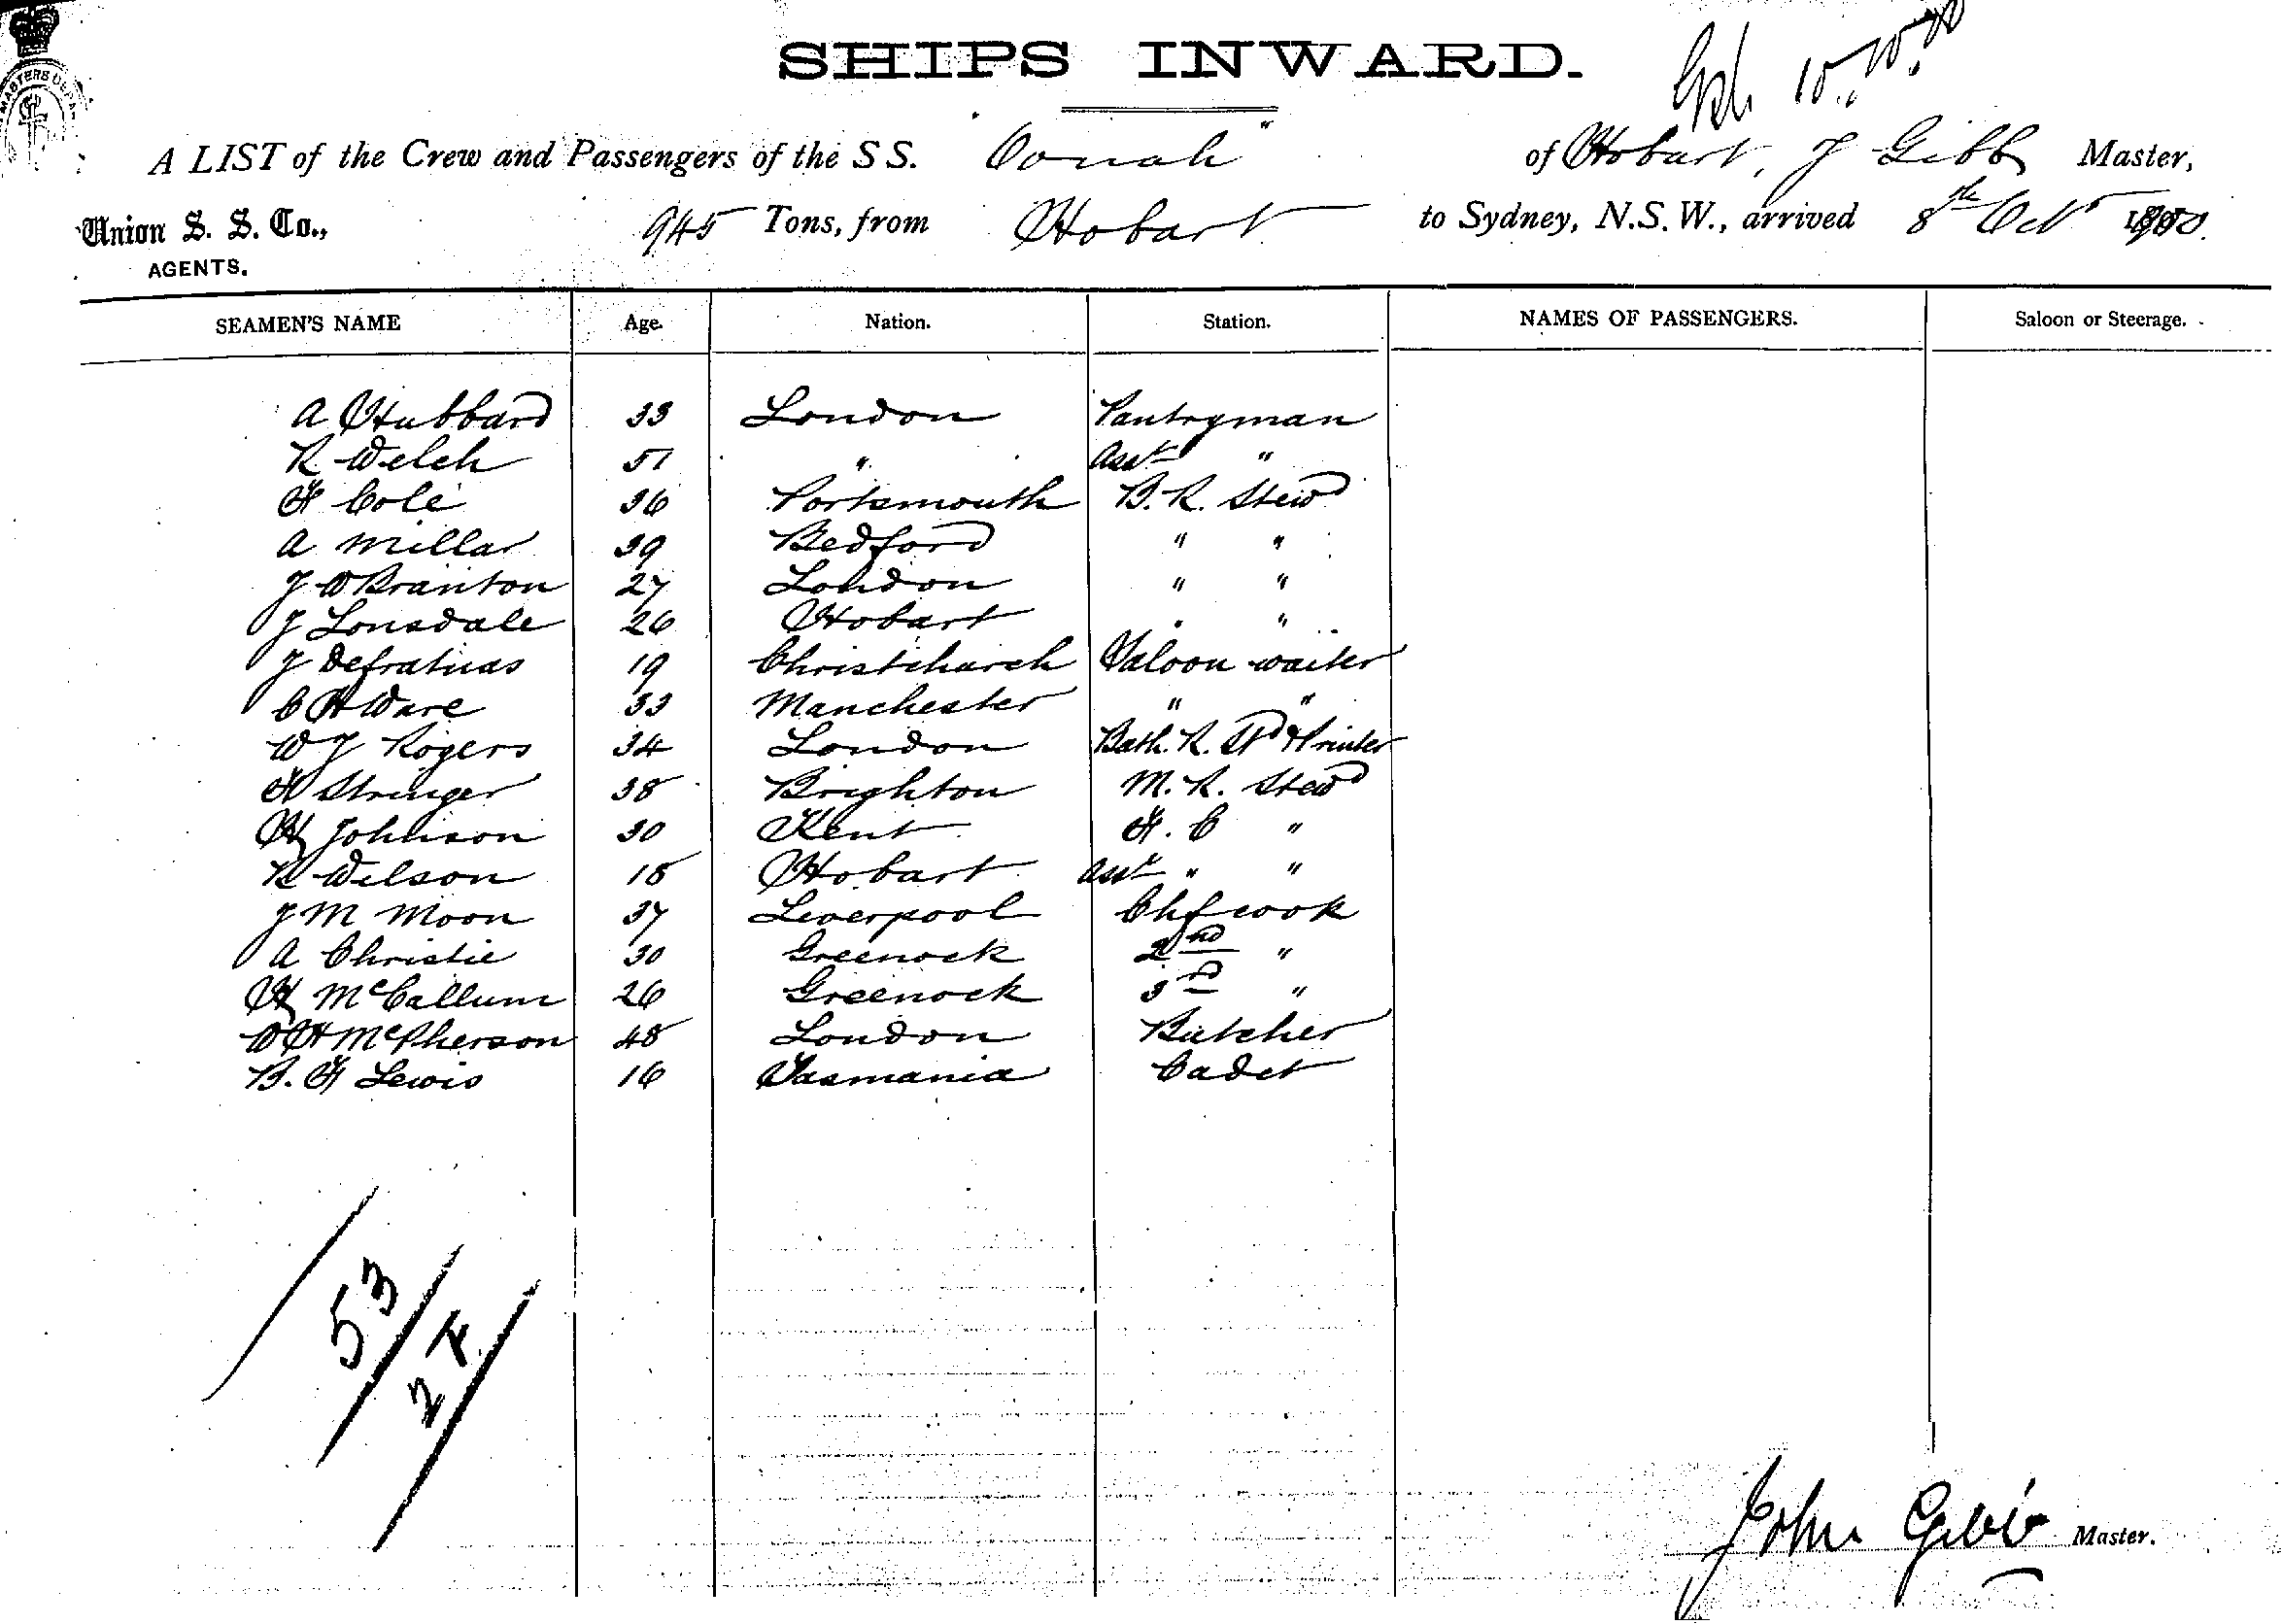 SHIPS INWARD.
A LIST of the Crew and Passengers of the S S. "Oonah" of Hobart, J Gibb Master,
Union S. S. Co., AGENTS. 945 Tons, from Hobart to Sydney, N.S.W., arrived 8th Oct 1900.
SEAMEN'S NAME Age. Nation. Station. NAMES OF PASSENGERS. Saloon or Steerage.
A Hubbard 33 London Pantryman
R Welch 51 " Asst "
F Cole 36 Portsmouth B. R. Stewd
A Millar 39 Bedford " "
J W Branton 27 London " "
J Lonsdale 26 Hobart " "
J 19 Christchurch Saloon waiter
C H Ware 33 Manchester " "
W J Rogers 34 London Bath. R. Std & Printer
F Stringer 38 Brighton M. R. Stewd
H Johnson 30 Kent F. C "
R Wilson 18 Hobart Asst " "
J M Moon 37 Liverpool Chf cook
A Christie 30 Greenock 2nd "
H McCallum 26 Greenock 3rd "
W H McPherson 48 London Butcher
B. F Lewis 16 Tasmania Cadet
53
24
John Gibb Master.